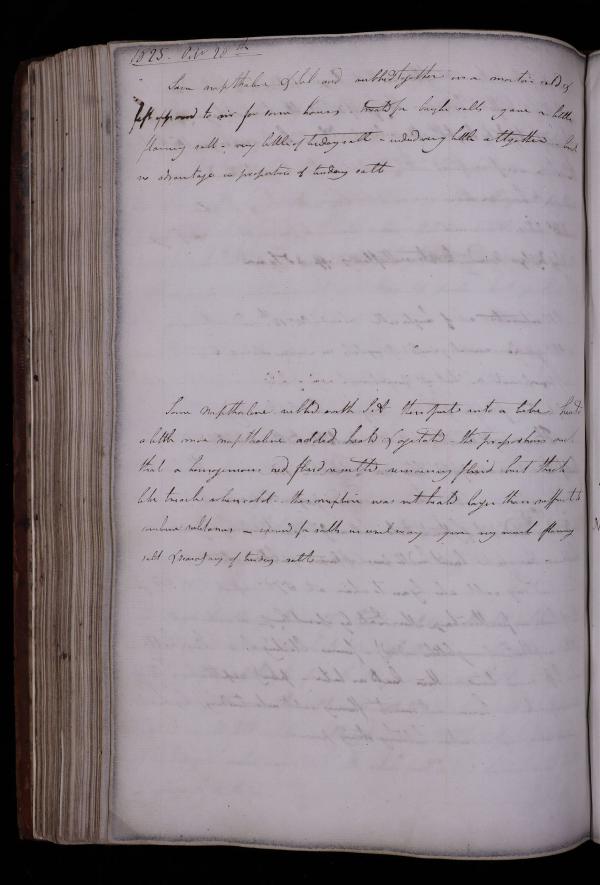 1825. Oct 28th
Some napthaline & S.A. and rubbed together in a mortar cold &
left exposed to air for some hours. treated for baryta salts gave a little
flaming salt - very little of tindery salt - indeed very little altogether - but
no advantage in proportion of tindery salt
Some napthaline rubbed with S.A then put into a tube heated
a little more napthaline added heat & agitated - the proportions
that a homogeneous red fluid resulted remaining fluid but thick
like treacle when cold - this mixture was not heated longer than sufficient to
combine substances - examined for salts in usual way gave very much flaming
salt & scarcely any of tindery salt